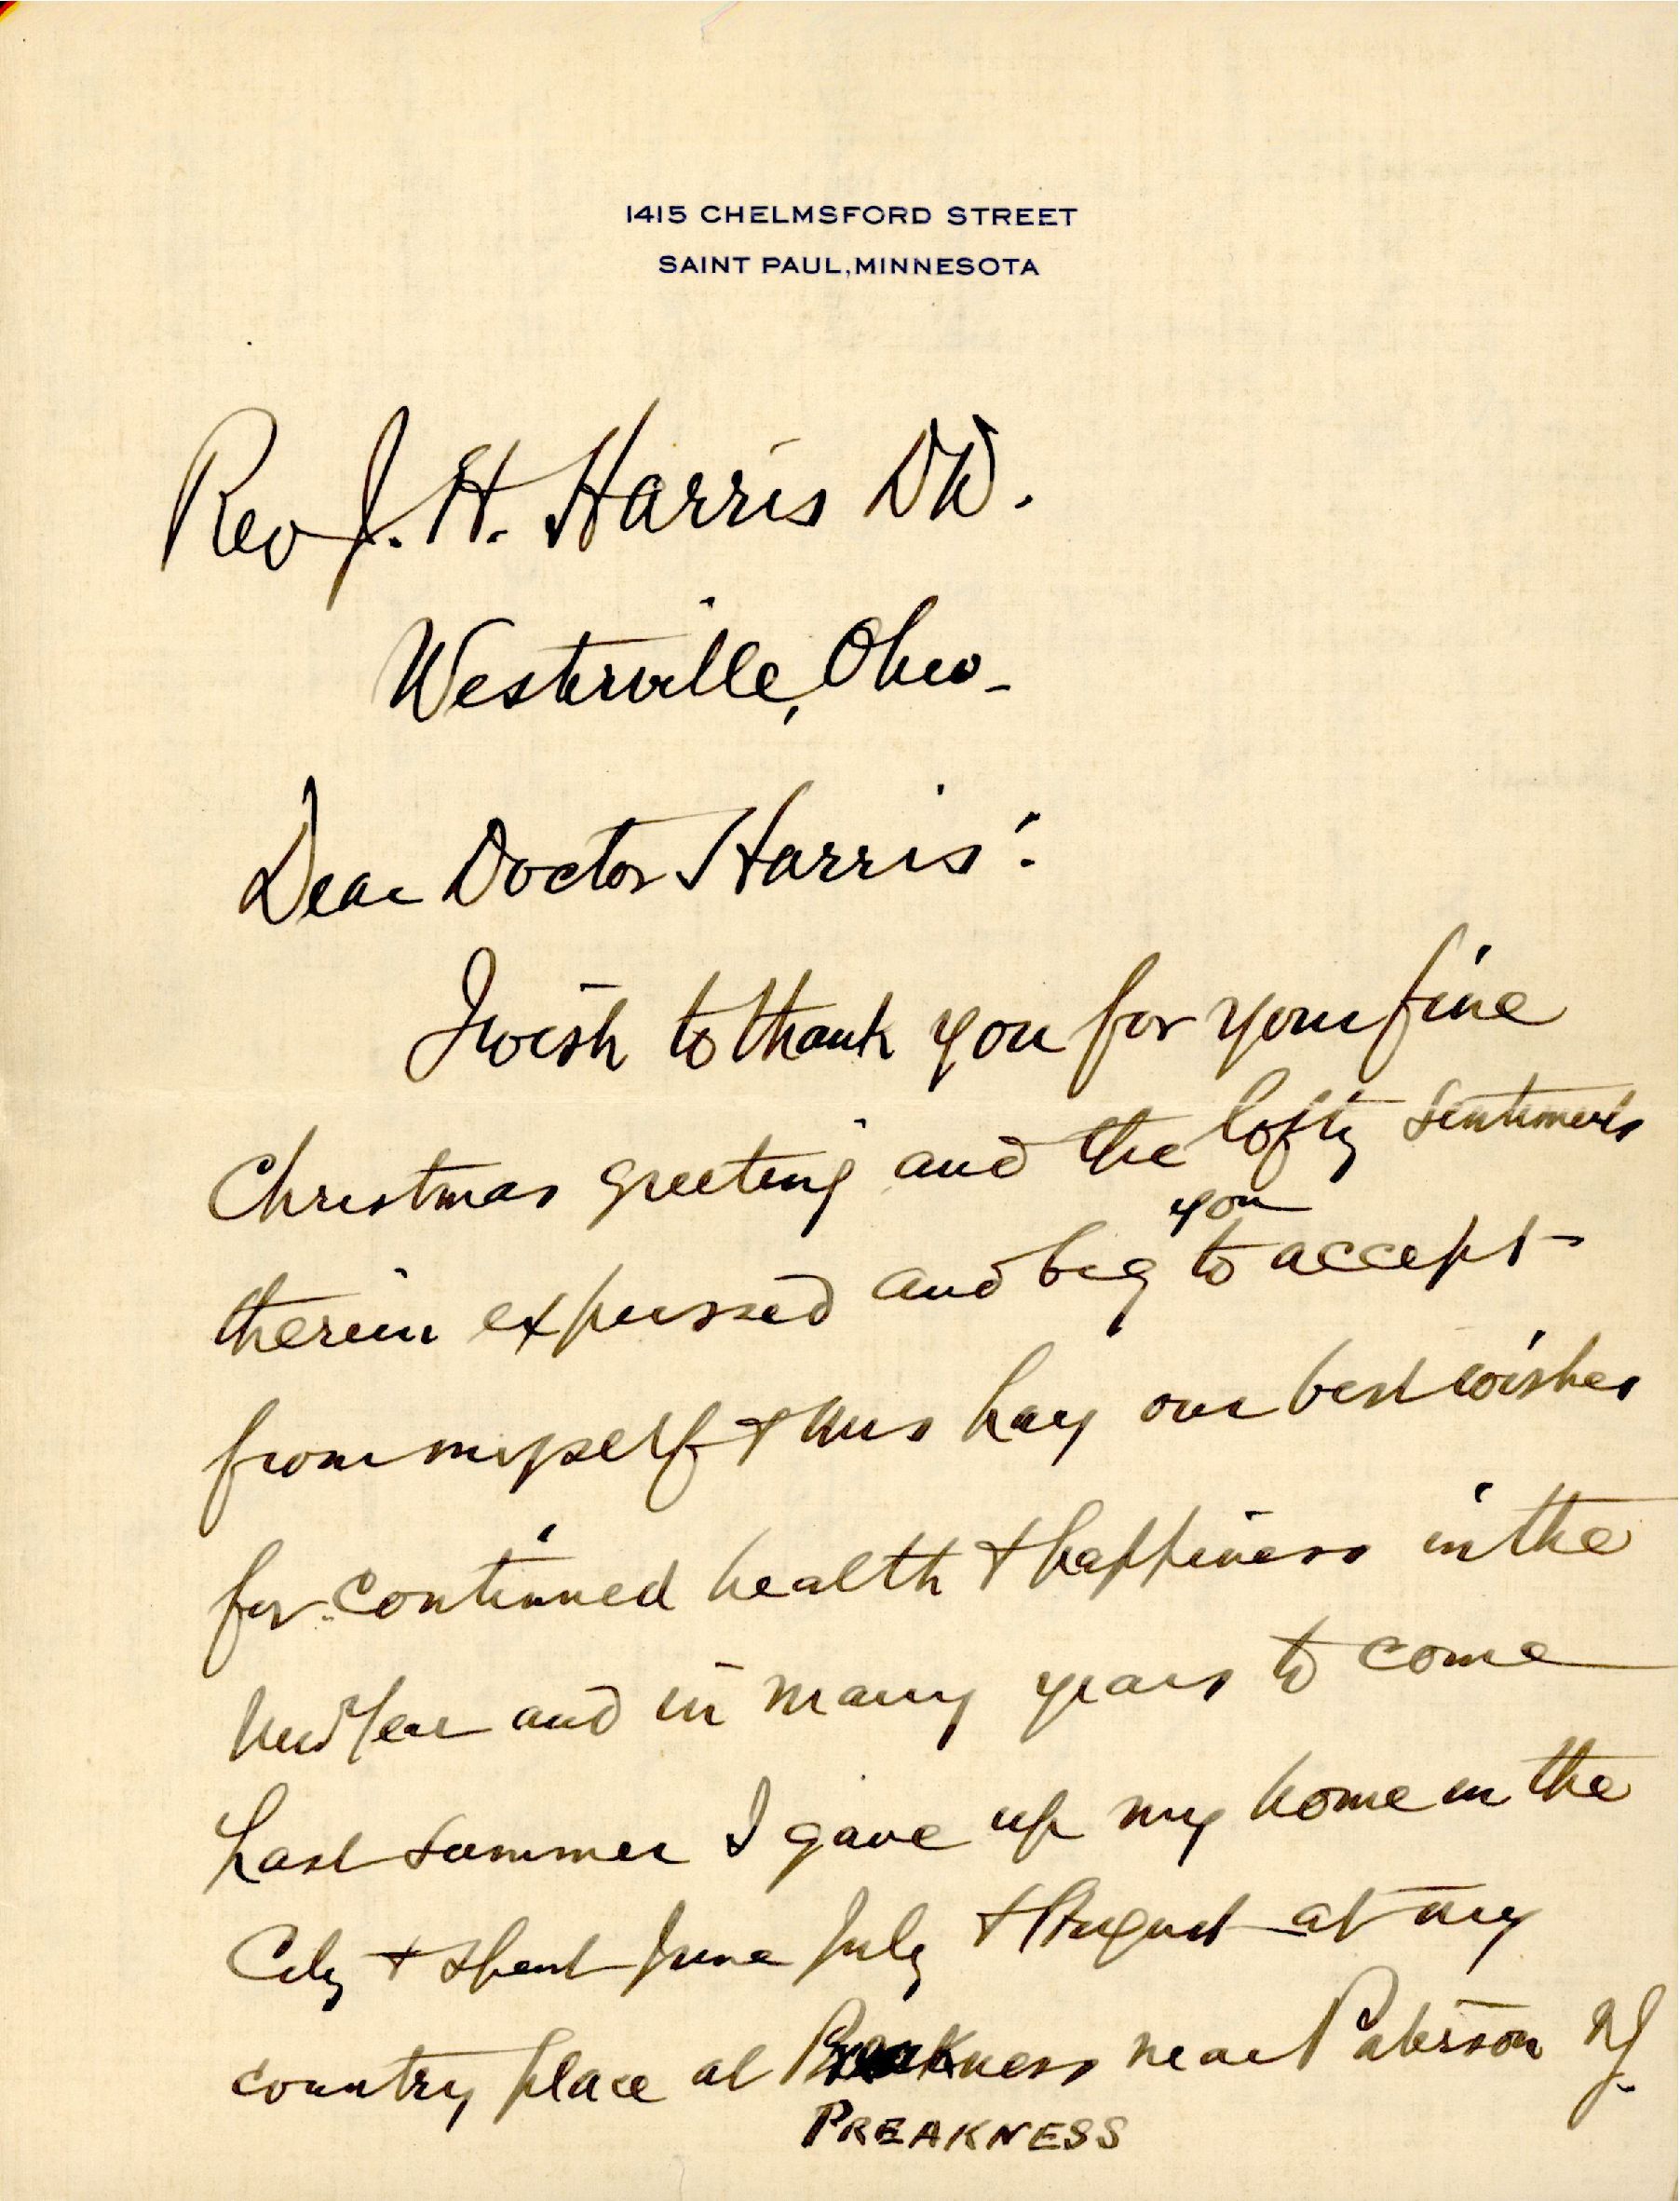 1415 CHELMSFORD STREET
SAINT PAUL, MINNESOTA
Rev J. H. Harris DD.
Westerville, Ohio -
Dear Doctor Harris:
I wish to thank you for your fine
Christmas greeting and the lofty sentiments
you
therein expressed and beg to accept
from myself + Mrs Hay our best wishes
for continued health + happiness in the
New Year and in many years to come
Last summer I gave up my home in the
City + spent June July + August at my
country place at Preakness near Paterson NJ.
PREAKNESS